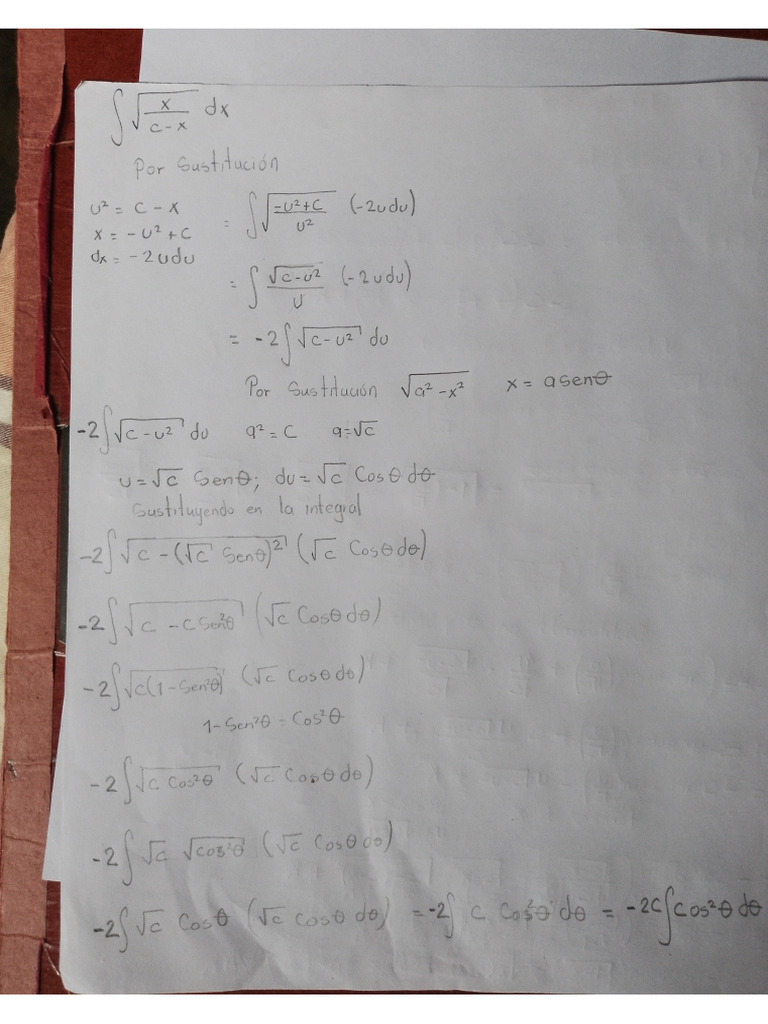 ∫ √(x/(c-x)) dx
Por Sustitución
u² = c - x
x = -u² + c
dx = -2udu
= ∫ √((-u²+c)/u²) (-2udu)
= ∫ (√(c-u²)/u) (-2udu)
= -2∫ √(c-u²) du
Por Sustitución √(a²-x²) x = a senθ
-2∫ √(c-u²) du a² = c a=√c
u=√c Senθ; du=√c Cosθ dθ
Sustituyendo en la integral
-2∫ √(c-(√c Senθ)²) (√c Cosθdθ)
-2∫ √(c - c Sen²θ) (√c Cosθdθ)
-2∫ √(c(1-Sen²θ)) (√c Cosθdθ)
1-Sen²θ = Cos²θ
-2∫ √(c Cos²θ) (√c Cosθdθ)
-2∫ √c √(cos²θ) (√c Cosθ dθ)
-2∫ √c Cosθ (√c Cosθ dθ) = -2∫ c Cos²θ dθ = -2c∫cos²θ dθ